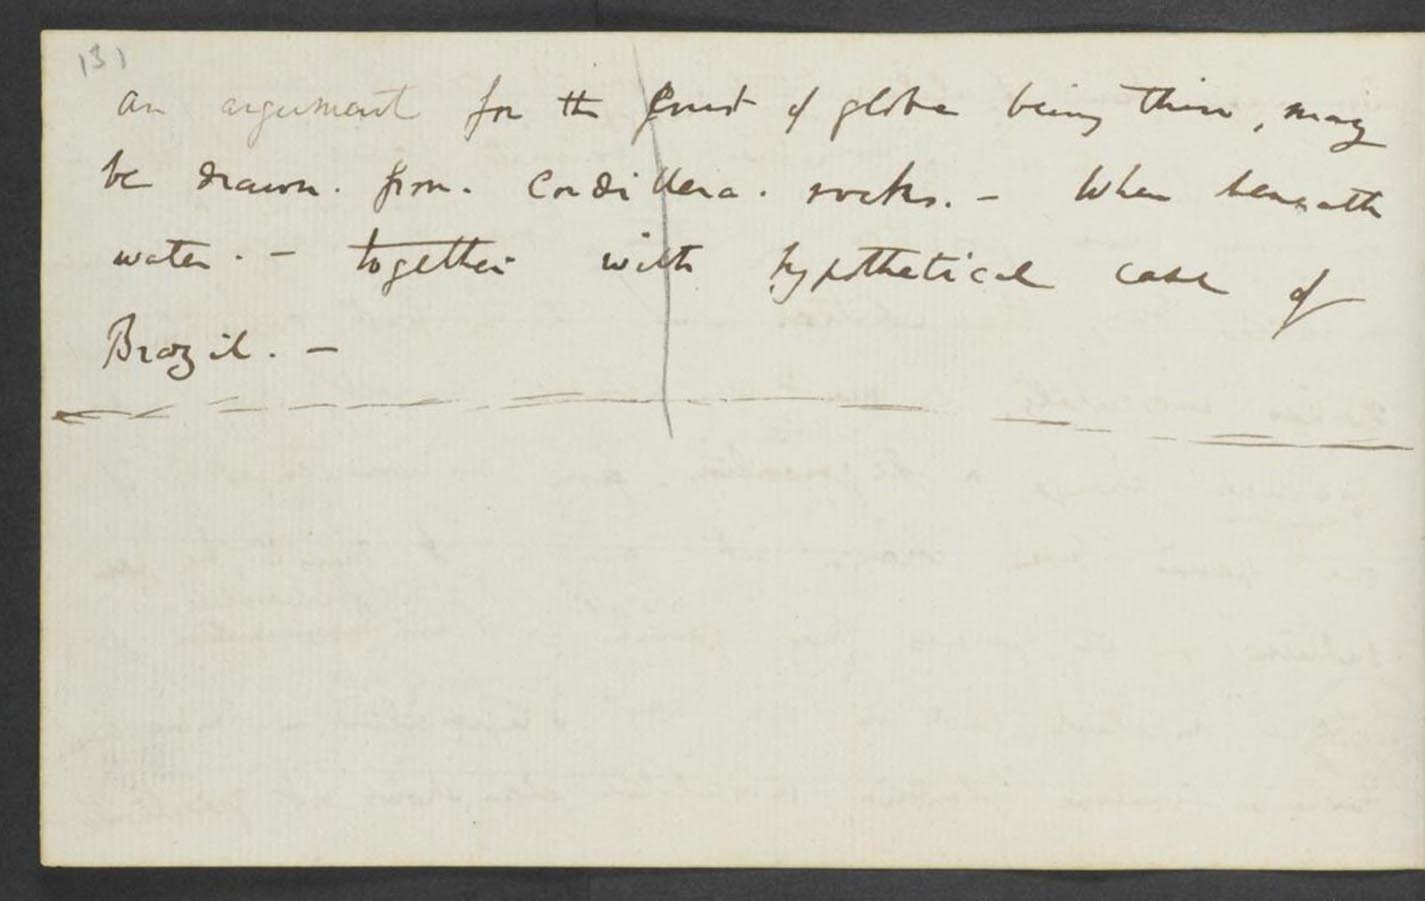 131
an argument for the Crust of globe being thin, may
be drawn. from. Cordillera. rocks. – When beneath
water. – together with hypothetical case of
Brazil. –